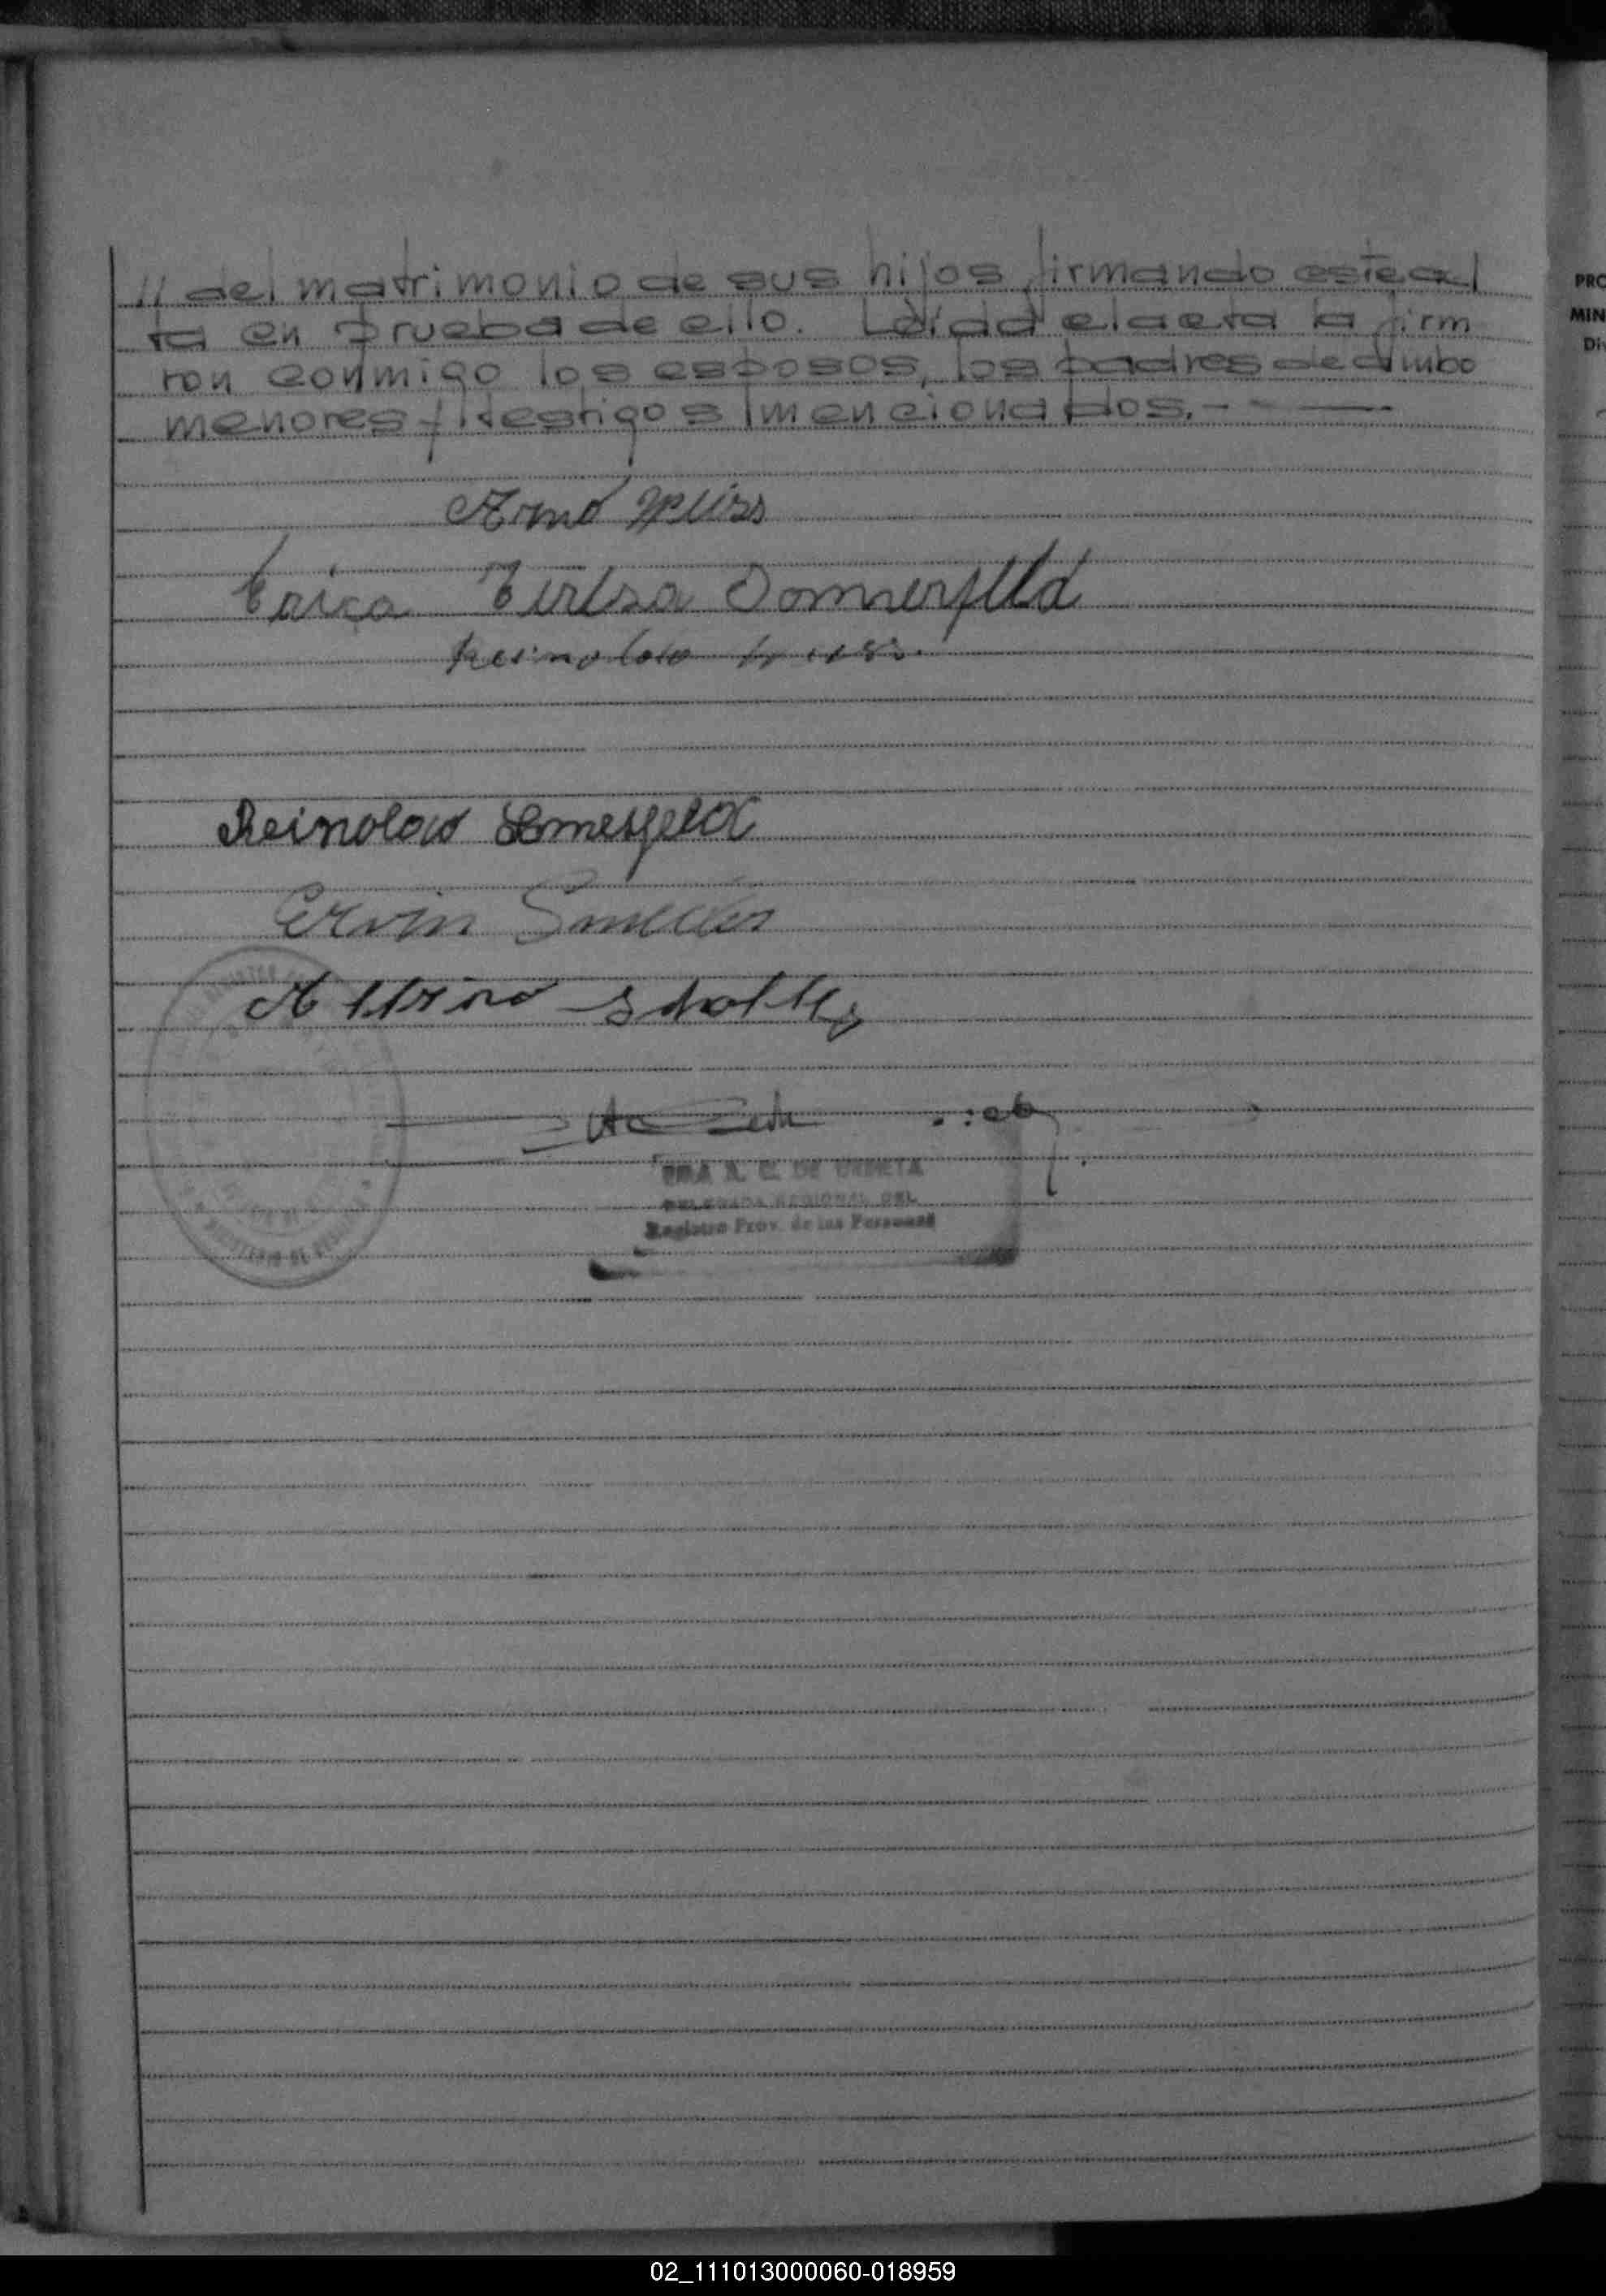 // del matrimonio de sus hijos, firmando este ac/
ta en prueba de ello. Leída el acta la firm
ron conmigo los esposos, los padres de ambo
menores y testigos mencionados.-
Arno
Erica Tirlsa Sommerfeld
Reinoldo
Reinoldo Somerfeld
Ervin
Albino
DRA A. C. DE URRETA
DELEGADA REGIONAL DEL
Registro Prov. de las Personas
PRO
MIN
Di
02_111013000060-018959